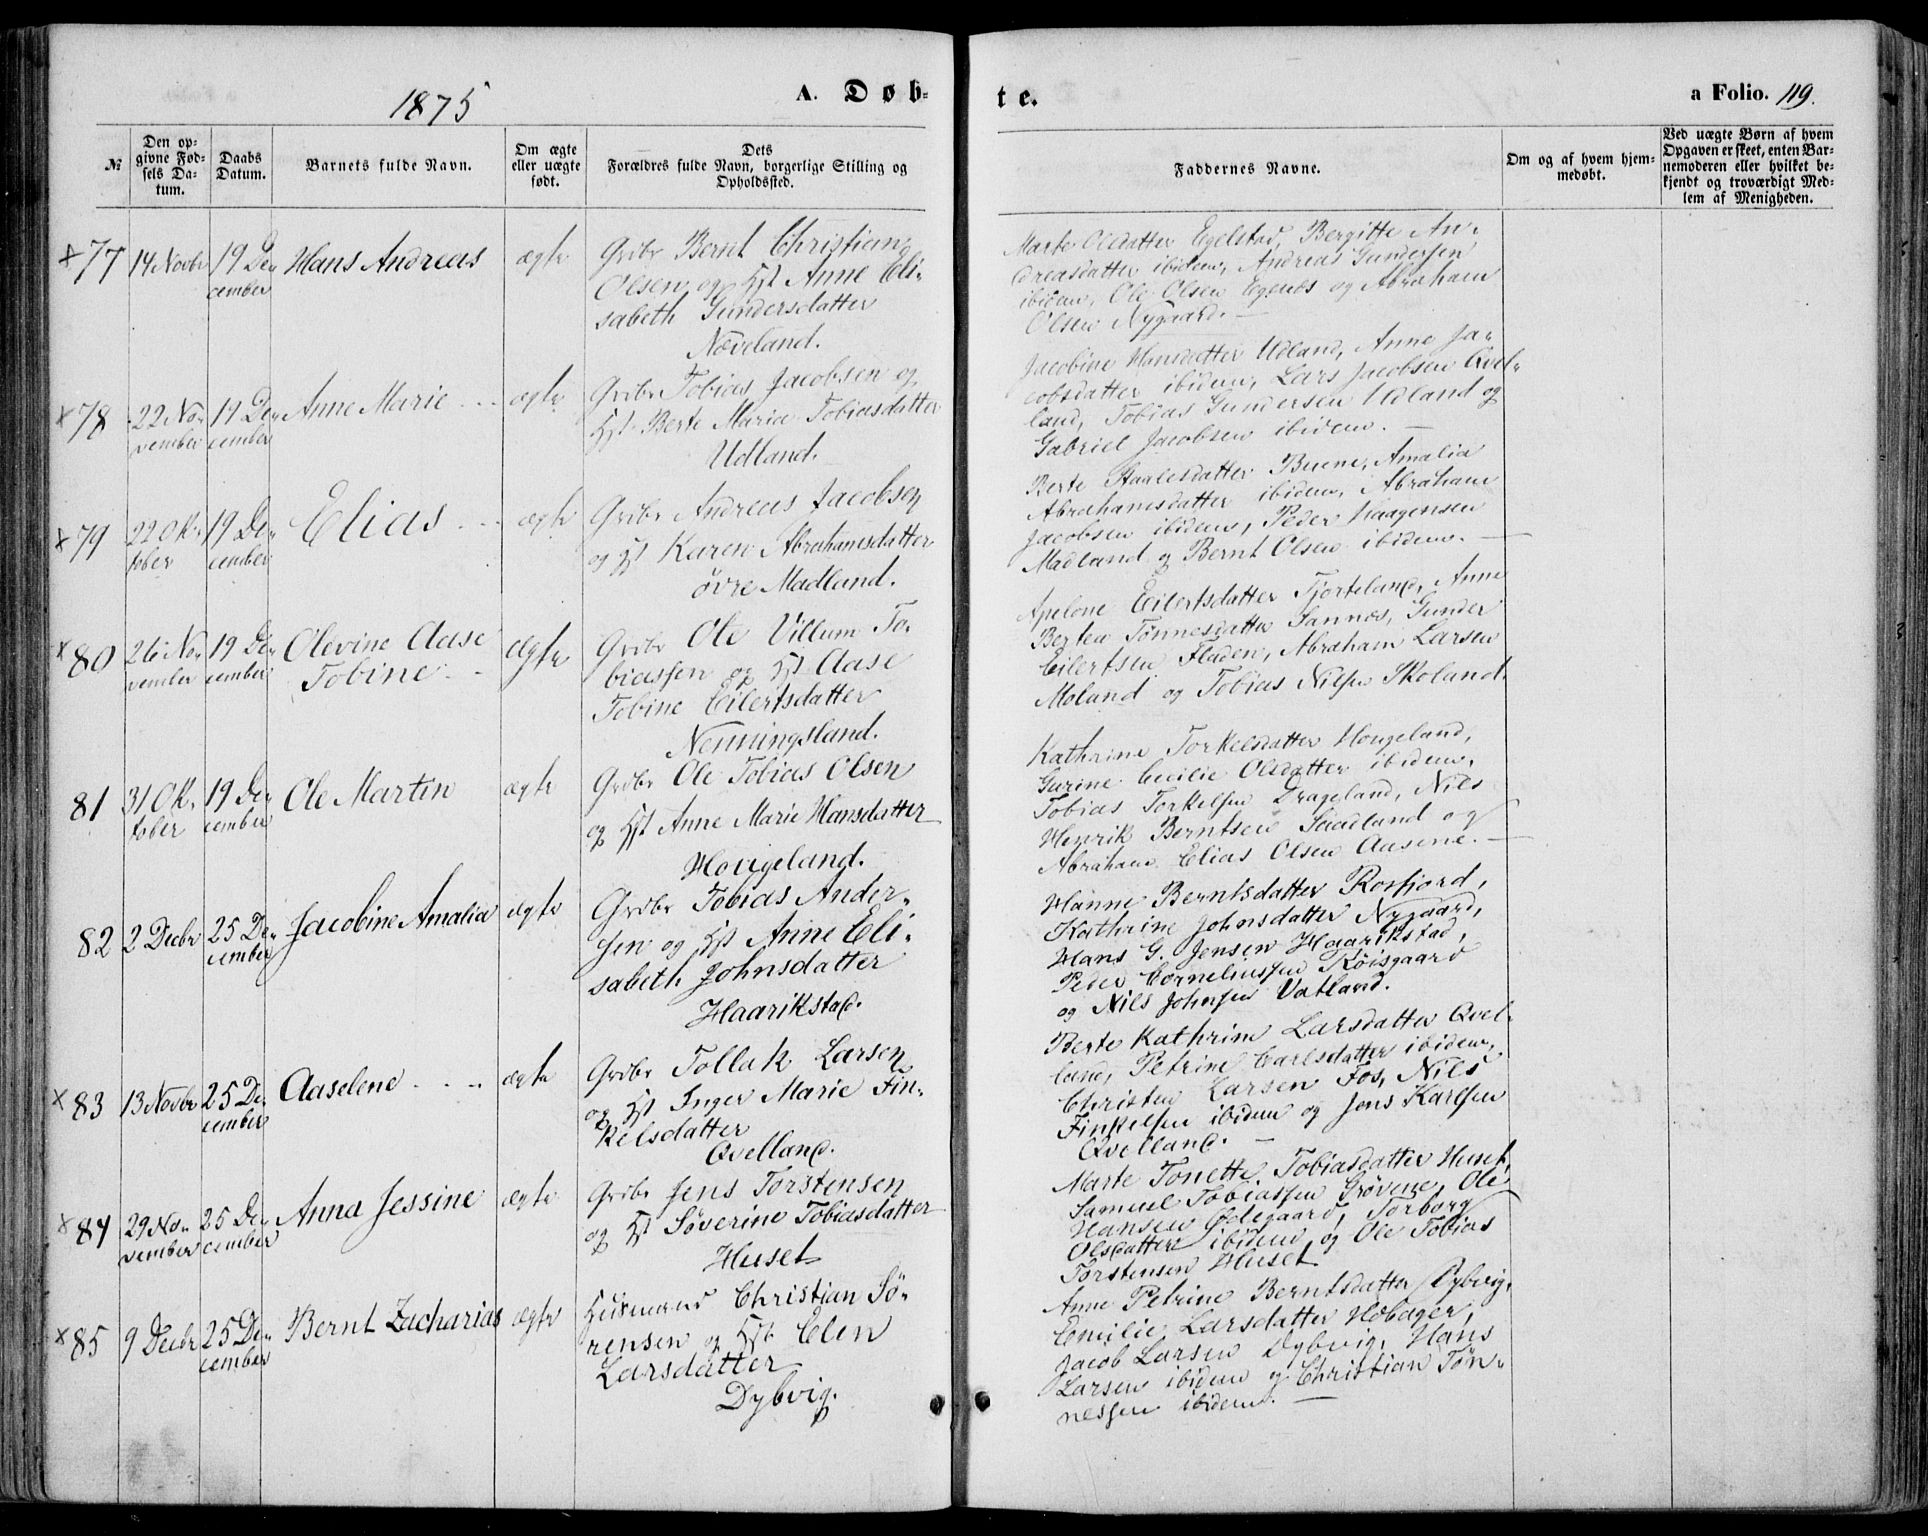 1875
A. Døb-
te.
a Folio. 119.
№
Den op-
givne Fød-
sels Da-
tum.
Daabs
Datum.
Barnets fulde Navn.
Om ægte
eller uægte
født.
Dets
Forældres fulde Navn, borgerlige Stilling og
Opholdssted.
Faddernes Navne.
Om og af hvem hjem-
medøbt.
Ved uægte Børn af hvem
Opgaven er skeet, enten Bar-
nemoderen eller hvilket be-
kjendt og troværdigt Med-
lem af Menigheden.
x 77
14 Novbr
19 De-
cember
Hans Andreas
ægte
Grdbr Bernt Christian
Olsen og Hst Anne Eli-
sabeth Gundersdatter
Næveland.
Marte Olsdatter Egelstad, Bergitte An-
dreasdatter ibidem, Andreas Gundersen
ibidem, Ole Olsen Egenæs og Abraham
Olsen Nygaard. —
x 78
22 No-
vember
19 De-
cember
Anne Marie
ægte
Grdbr Tobias Jacobsen og
Hst Berte Maria Tobiasdatter
Udland.
Jacobine Hansdatter Udland, Anne Ja-
cobsdatter ibidem, Lars Jacobsen Qvel-
land, Tobias Gundersen Udland og
Gabriel Jacobsen ibidem. —
x 79
22 Ok-
tober
19 De-
cember
Elias
ægte
Grdbr Andreas Jacobsen
og Hst Karen Abrahamsdatter
øvre Madland.
Berte Staalesdatter Buene, Amalia
Abrahamsdatter ibidem, Abraham
Jacobsen ibidem, Peder Haagensen
Madland og Bernt Olsen ibidem. —
x 80
26 No-
vember
19 De-
cember
Olevine Aase
Tobine
ægte
Grdbr Ole Villum To-
biassen og Hst Aase
Tobine Eilertsdatter
Nenningsland.
Apelone Eilertsdatter Tjorteland, Anne
Bertea Tønnesdatter Sannæs, Gunder
Eilertsen Fladen, Abraham Larsen
Moland og Tobias Nilsen Skoland.
81
31 Ok-
tober
19 De-
cember
Ole Martin
ægte
Grdbr Ole Tobias Olsen
og Hst Anne Marie Hansdatter
Hougeland.
Kathrine Torkelsdatter Hougeland,
Gurine Cecilie Olsdatter ibidem,
Tobias Torkelsen Drageland, Nils
Henrik Berntsen Saadland og
Abraham Elias Olsen Aasene. —
82
2 Decbr
25 De-
cember
Jacobine Amalia
ægte
Grdbr Tobias Ander-
sen og Hst Anne Eli-
sabeth Johnsdatter
Haarikstad.
Hanne Berntsdatter Rosfjord,
Kathrine Johnsdatter Nygaard,
Hans G. Jensen Haarikstad,
Peder Corneliussen Røisgaard
og Nils Johnsen Vatland.
x 83
13 Novbr
25 De-
cember
Aaselene
ægte
Grdbr Tollak Larsen
og Hst Inger Marie Fin-
kelsdatter
Qvelland.
Berte Kathrine Larsdatter Qvel-
land, Petrine Carlsdatter ibidem,
Christen Larsen Fos, Nils
Finkelsen ibidem og Jens Karlsen
Qvelland. —
x 84
29 No-
vember
25 De-
cember
Anna Jessine
ægte
Grdbr Jens Torstensen
og Hst Søverine Tobiasdatter
Huset
Marte Tonette Tobiasdatter Huset,
Samuel Tobiassen Grøvene, Ole
Hansen Ødegaard, Torborg
Olsdatter ibidem og Ole Tobias
Torstensen Huset
x 85
9 Decbr
25 De-
cember
Bernt Zacharias
ægte
Husmand Christian Sø-
rensen og Hst Elen
Larsdatter
Dybvig.
Anne Petrine Berntsdatter Dybvig,
Emilie Larsdatter Hobager,
Jacob Larsen Dybvig, Hans
Larsen ibidem og Christian Tøn-
nessen ibidem. —